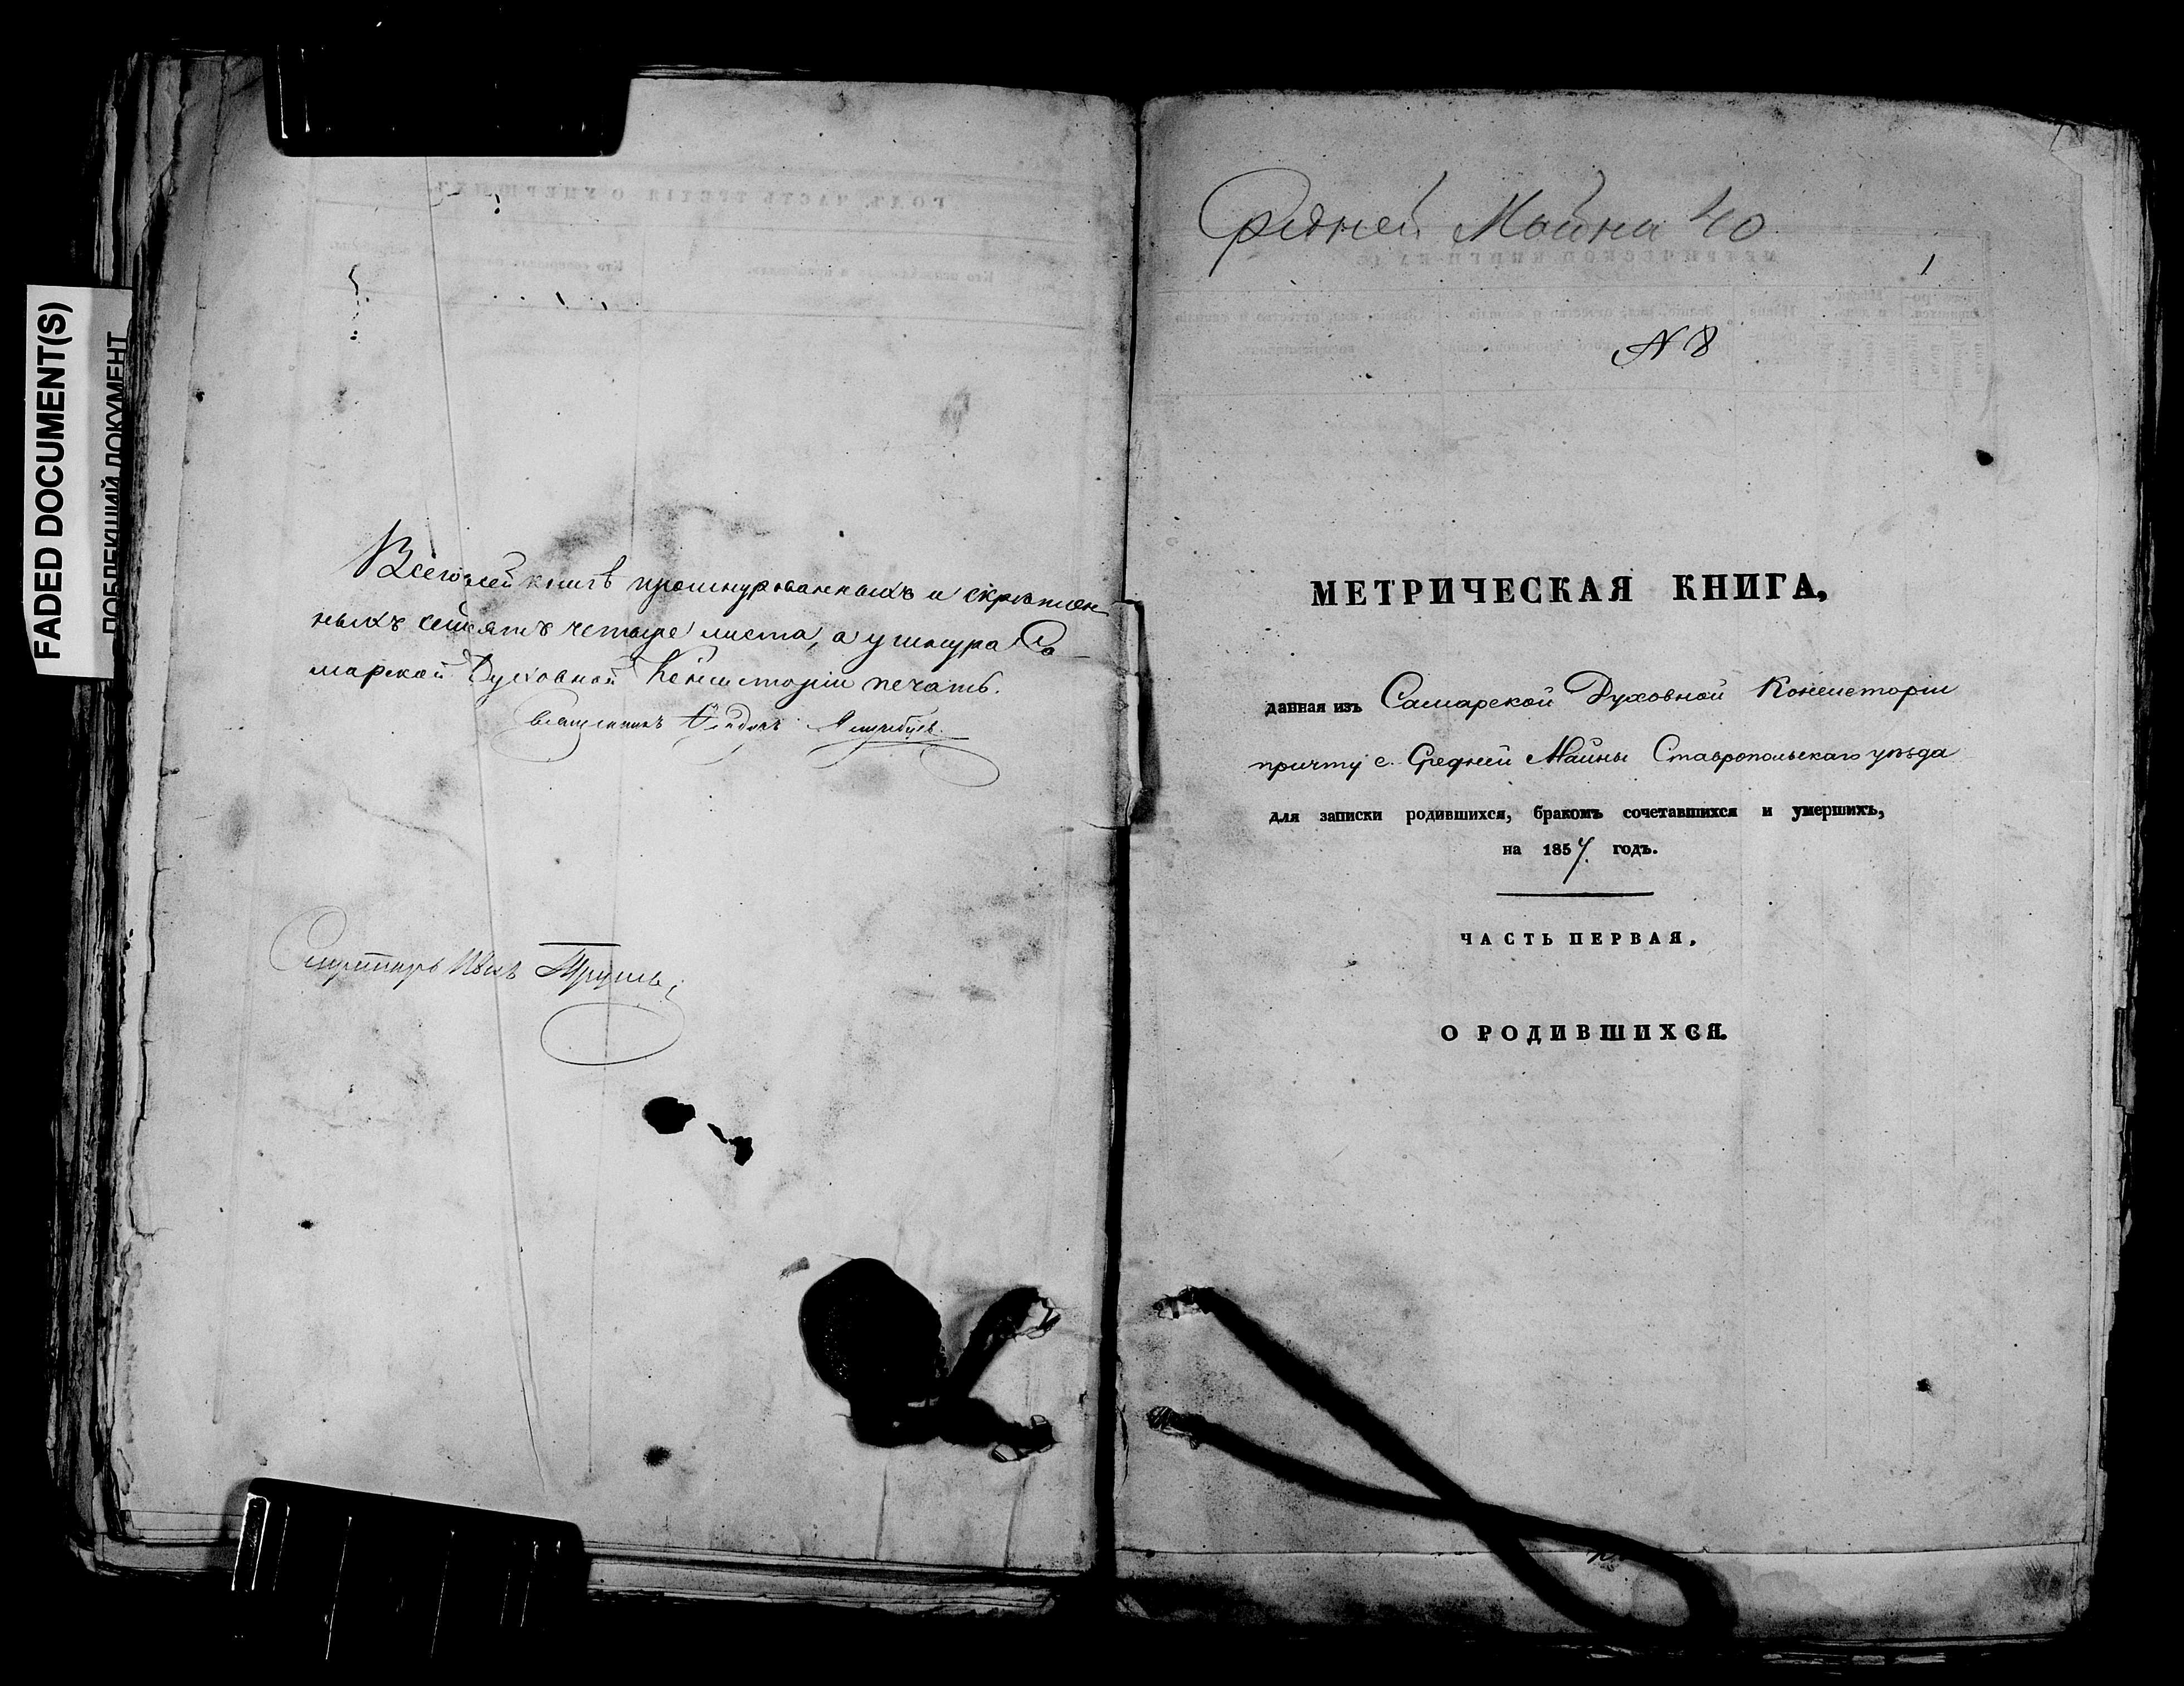 FADED DOCUMENT(S)
ПОБЛЕКШИЙ ДОКУМЕНТ
Всего въ сей книгѣ прошнурованныхъ и скрѣплен
ныхъ четыре листа, а у шнура Са-
марской Духовной Консисторіи печать.
Священникъ
Секретарь Ив
Средней Майна 40
1
N 8
МЕТРИЧЕСКАЯ КНИГА,
данная изъ Самарской Духовной Консисторіи
причту с. Средней Майны Ставропольскаго уѣзда
для записки родившихся, бракомъ сочетавшихся и умершихъ,
на 1857. годъ.
ЧАСТЬ ПЕРВАЯ,
О РОДИВШИХСЯ.